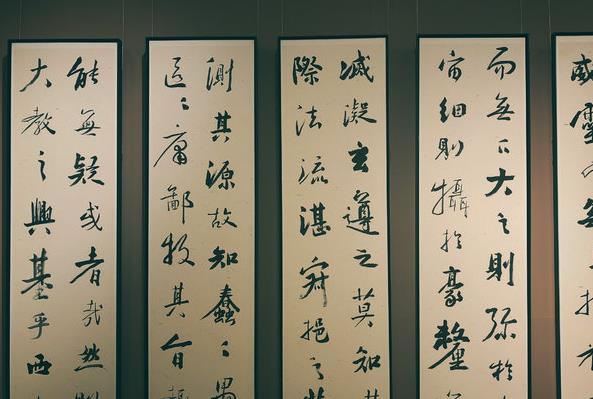 威靈
而無下大之則弥於
宙細則攝於豪釐
滅凝玄遵之莫知其
際法流湛寂挹之莫
測其源故知蠢〻愚
區〻庸鄙投其旨趣
能無疑或者哉然則
大教之興基乎西